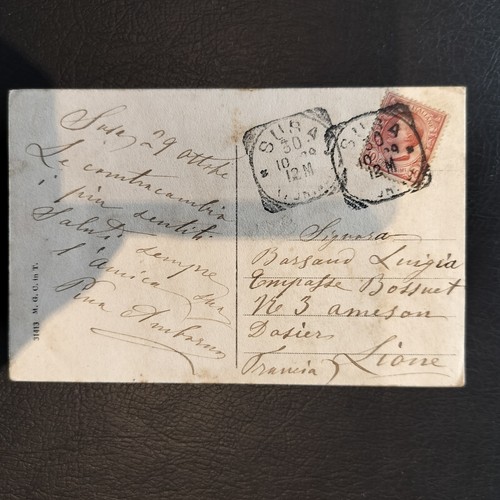 Susa 29 Ottobre
Le contracambio
i più sentiti
Saluti sempre
l'amica sua
Pina
31413 M. G. C. in T.
SUSA
30
10 09
12M
TORINO
SUSA
30
10 09
12M
Signora
Borsaud Luigia
Empasse Bossuet
Nº 3 ameson
Dosier
Francia Lione